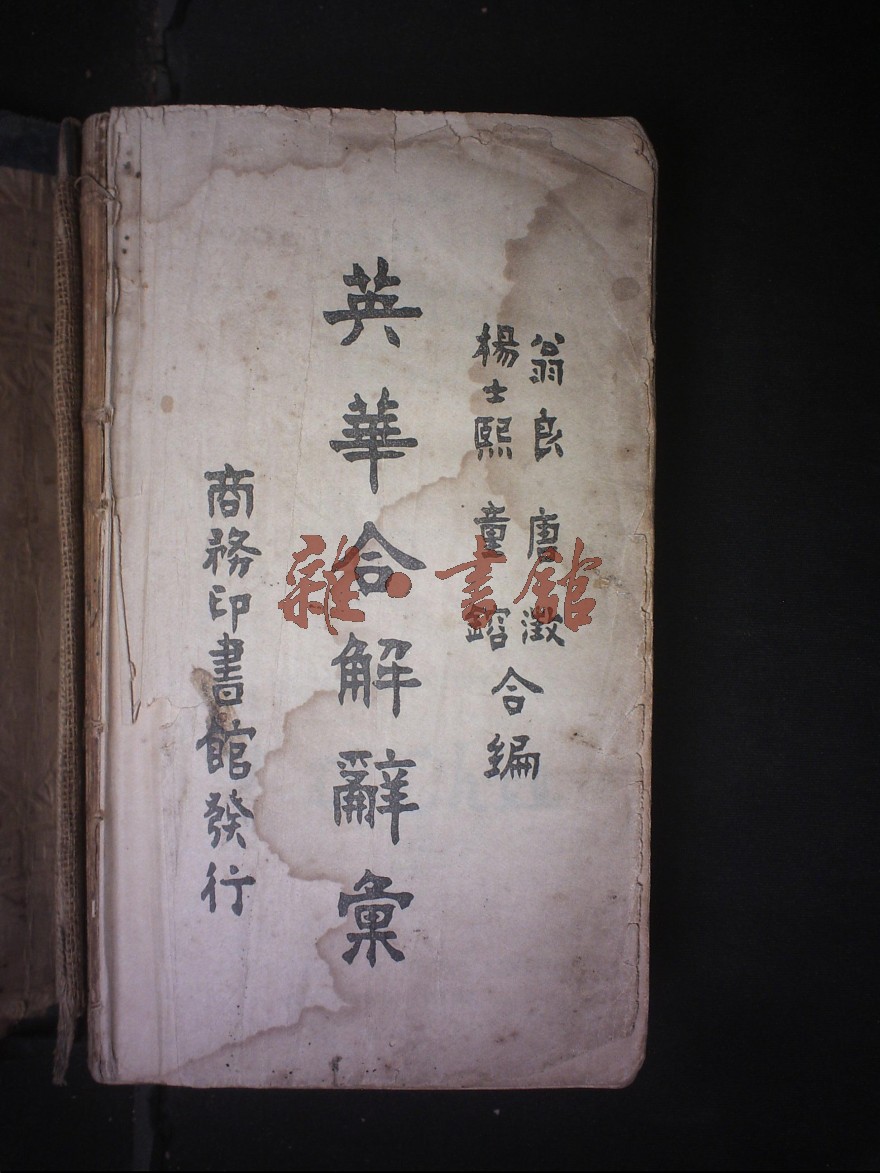 翁良 唐澂
楊士熙 童鎔
合編
英華合解辭彙
商務印書館發行
雜·書館